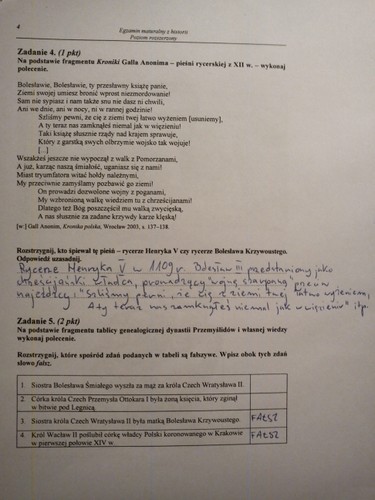 4
Egzamin maturalny z historii
Poziom rozszerzony
Zadanie 4. (1 pkt)
Na podstawie fragmentu Kroniki Galla Anonima – pieśni rycerskiej z XII w. – wykonaj
polecenie.
Bolesławie, Bolesławie, ty przesławny książę panie,
Ziemi swojej umiesz bronić wprost niezmordowanie!
Sam nie sypiasz i nam także snu nie dasz ni chwili,
Ani we dnie, ani w nocy, ni w rannej godzinie!
Szliśmy pewni, że cię z ziemi twej łatwo wyżeniem [usuniemy],
A ty teraz nas zamknąłeś niemal jak w więzieniu!
Taki książę słusznie rządy nad krajem sprawuje,
Który z garstką swych olbrzymie wojsko tak wojuje!
[...]
Wszakżeś jeszcze nie wypoczął z walk z Pomorzanami,
A już, karząc naszą śmiałość, uganiasz się z nami!
Miast tryumfatora witać hołdy należnymi,
My przeciwnie zamyślamy pozbawić go ziemi!
On prowadzi dozwolone wojny z poganami,
My wzbronioną walkę wiedziem tu z chrześcijanami!
Dlatego też Bóg poszczęścił mu walką zwycięską,
A nas słusznie za zadane krzywdy karze klęską!
[w:] Gall Anonim, Kronika polska, Wrocław 2003, s. 137–138.
Rozstrzygnij, kto śpiewał tę pieśń – rycerze Henryka V czy rycerze Bolesława Krzywoustego.
Odpowiedź uzasadnij.
Rycerze Henryka V w 1109 r. Bolesław III przedstawiony jako
chrześcijański władca, prowadzący "wojnę
najeźdźcy: "Szliśmy pewni, że cię z ziemi twej łatwo wyżeniem,
A ty teraz nas zamknąłeś niemal jak w więzieniu" itp.
Zadanie 5. (2 pkt)
Na podstawie fragmentu tablicy genealogicznej dynastii Przemyślidów i własnej wiedzy
wykonaj polecenie.
Rozstrzygnij, które spośród zdań podanych w tabeli są fałszywe. Wpisz obok tych zdań
słowo fałsz.
1. Siostra Bolesława Śmiałego wyszła za mąż za króla Czech Wratysława II.
2. Córka króla Czech Przemysła Ottokara I była żoną księcia, który zginął
w bitwie pod Legnicą.
3. Siostra króla Czech Wratysława II była matką Bolesława Krzywoustego. FAŁSZ
4. Król Wacław II poślubił córkę władcy Polski koronowanego w Krakowie FAŁSZ
w pierwszej połowie XIV w.